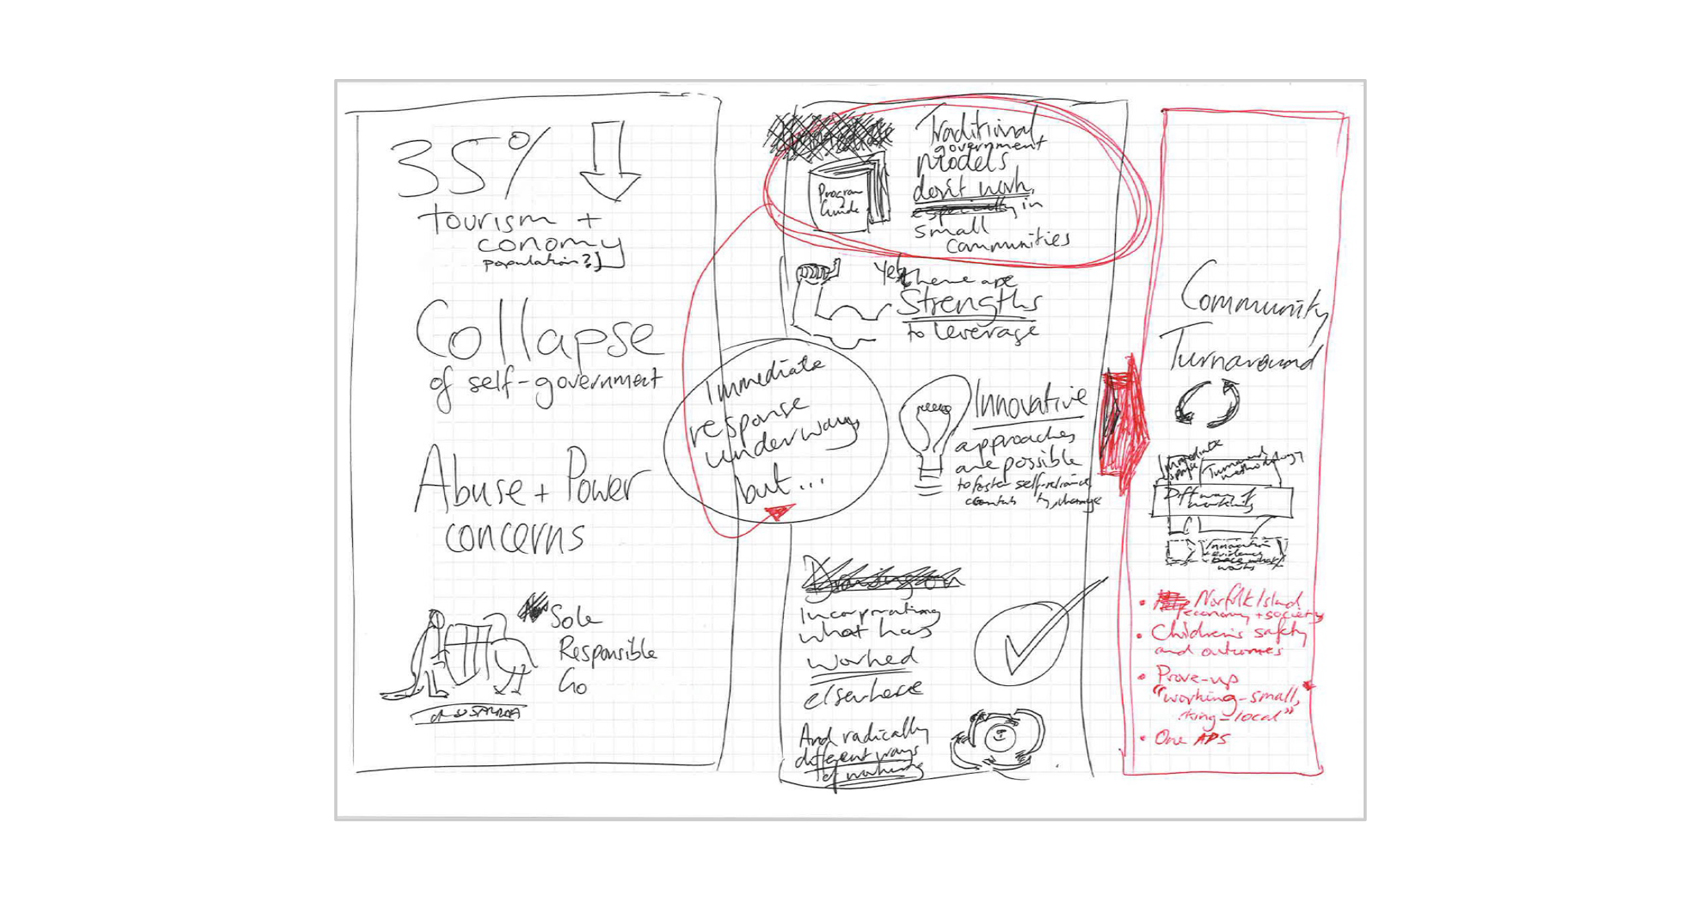 35%
tourism +
conomy
population?
Collapse
of self-government
Abuse + Power
concerns
Sole
Responsible
Go
Immediate
response
underway
but...
Program
Guide
Traditional
government
models
don't work,
in
small
communities
Yes there are
Strengths
to leverage
Innovative
approaches
are possible
to foster self-reliance
change
Incorporating
what has
worked
elsewhere
And radically
different ways
of working
Community
Turnaround
Immediate
Turnaround
methodology
working
Innovation
evidence
works
• Norfolk Island
economy + society
• Children's safety
and outcomes
• Prove-up
"working-small,
king-local"
• One APS